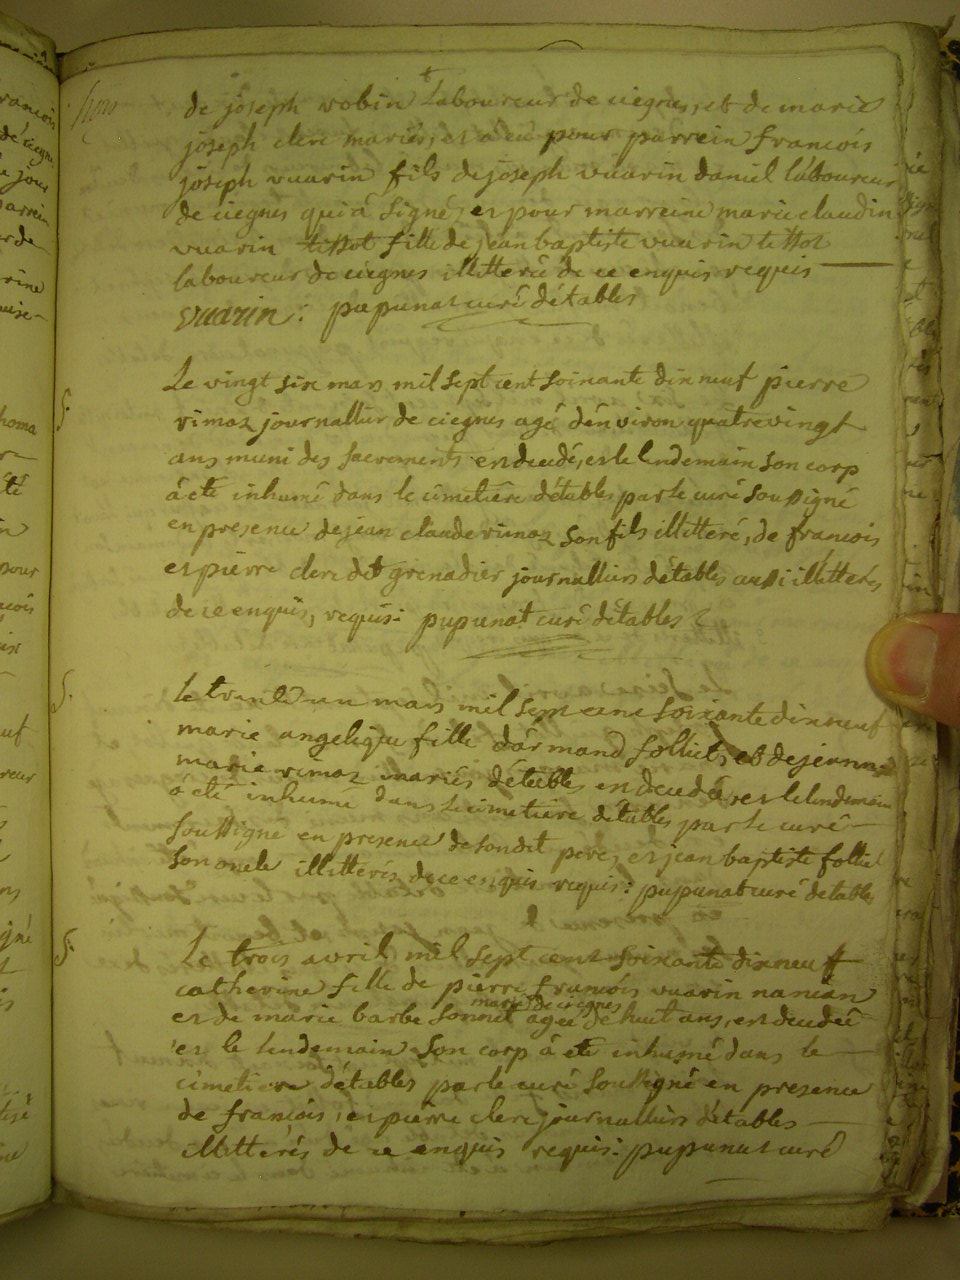 de joseph robin laboureur de ciegnes, et de marie
joseph clerc mariés, et a eu pour parrein francois
joseph vuarin fils de joseph vuarin daniel laboureur
de ciegnes qui á signé, et pour marreine marie claudin
vuarin tissot fille de jean baptiste vuarin tissot
laboureur de ciegnes illitteré de ce enquis requis
vuarin : pupunat curé détables
S.
Le vingt six mars mil sept cent soixante dix neuf pierre
rimaz journallier de ciegnes agé dénviron quatrevingt
ans muni des sacrements est decedé, et le lendemain son corp
á eté inhumé dans le cimetiêre détables par le curé soussigné
en presence de jean claude rimaz son fils illitteré, de francois
et pierre clerc dit grenadier journalliers détables aussi illitterés
de ce enquis, requis : pupunat curé détables
S.
le trente un mars mil sept cent soixante dix neuf
marie angelique fille dármand folliet, et de jeanne
marie rimaz mariés détables est decedée, et le lendemain
á eté inhumé dans le cimetiere détables par le curé
soussigné en presence de sondit pere, et jean baptiste folliet
son oncle illitterés de ce enquis requis : pupunat curé détables
S.
Le trois avril mil sept cent soixante dix neuf
catherine fille de pierre francois vuarin nanian
mariés de ciegnes
et de marie barbe sonnet agée de huit ans, est decedée
et le lendemain son corp á eté inhumé dans le
cimetiere détables par le curé soussigné en presence
de francois, et pierre clerc journalliers détables
illitterés de ce enquis requis : pupunat curé